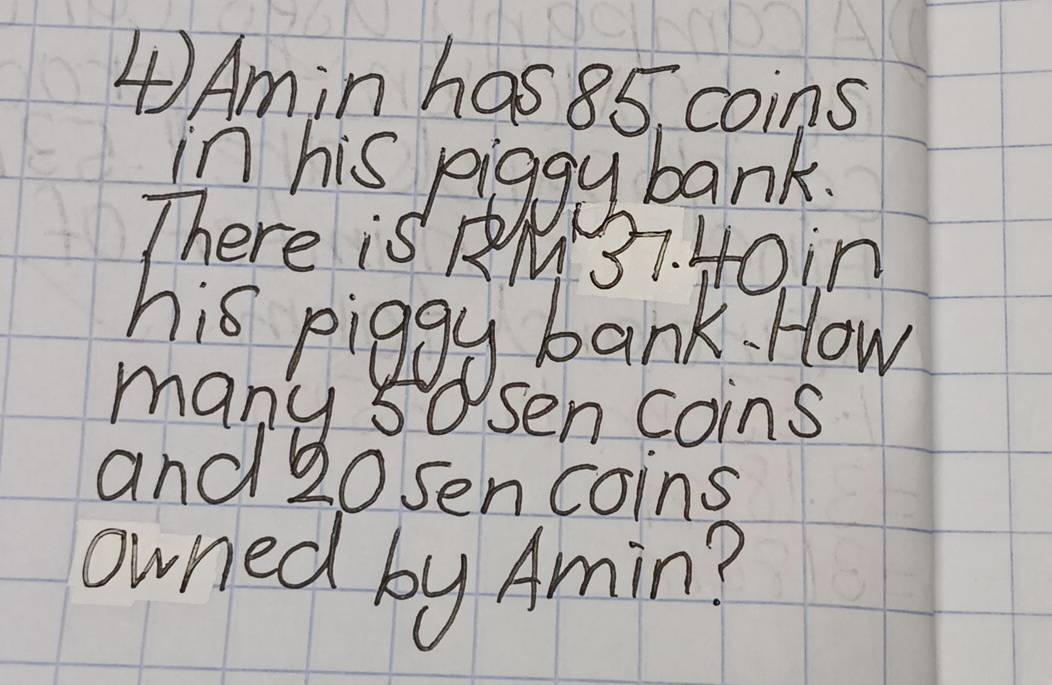 4) Amin has 85 coins
in his piggy bank.
There is RM 37.40 in
his piggy bank. How
many 50 sen coins
and 20 sen coins
owned by Amin?